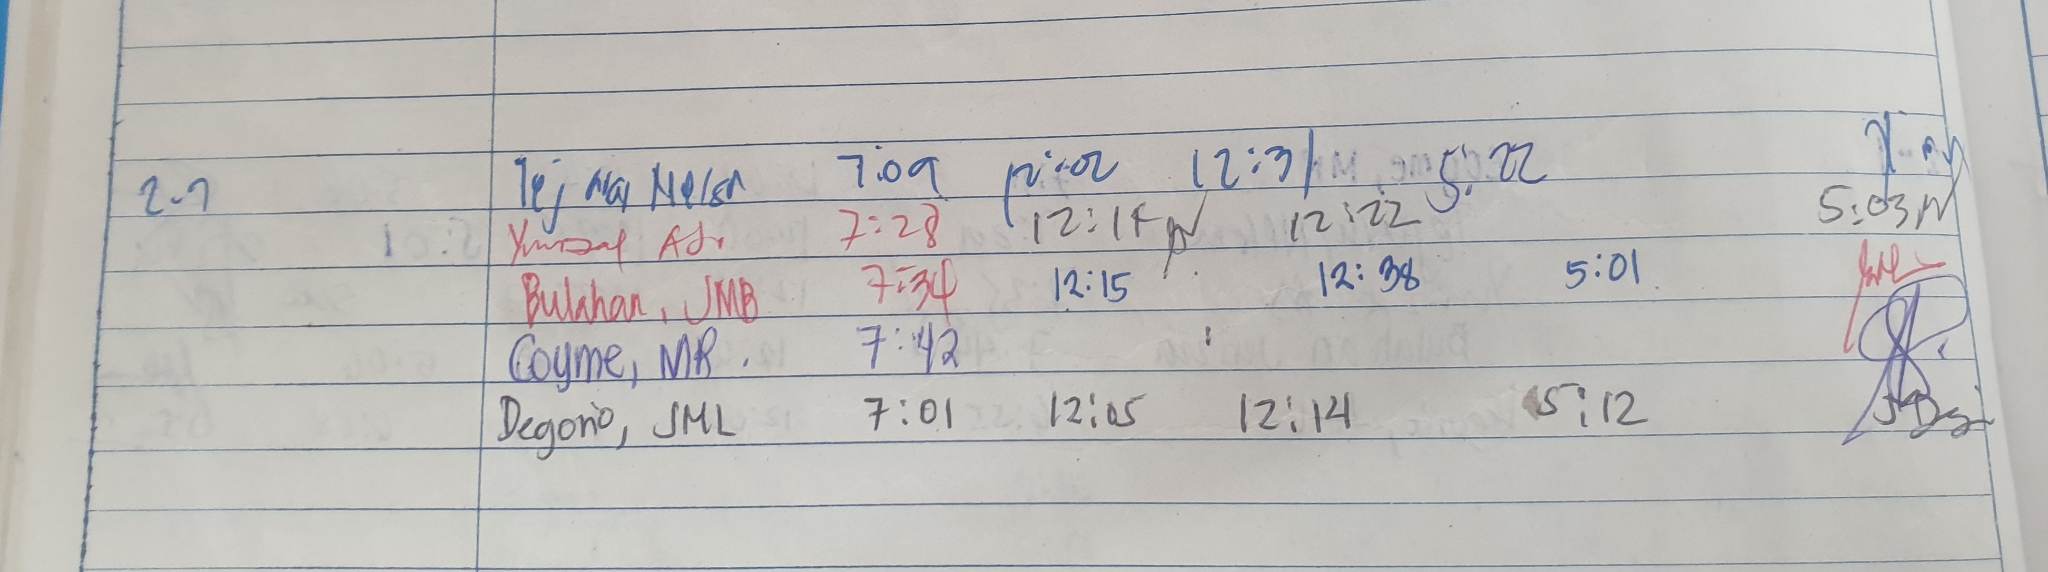 2-7 7:09 12:02 12:31 5:22
7:28 12:14 12:22 5:03
Bulahan, JMB 7:34 12:15 12:38 5:01
Coyme, MR. 7:42
Degorio, JML 7:01 12:05 12:14 5:12